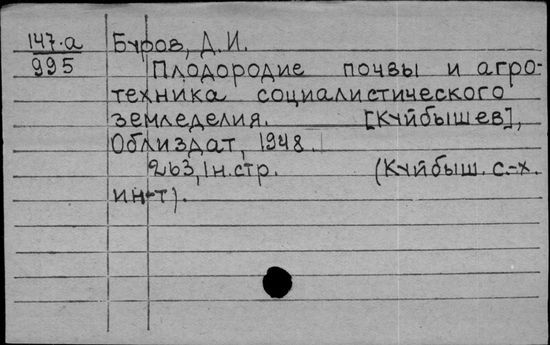 147.а Буров, Д.И.
995 Плодородие почвы и агро-
техника социалистического
земледелия. [Куйбышев],
Облиздат, 1948.
263,1н.стр. (Куйбыш. с.-х.
ин-т).